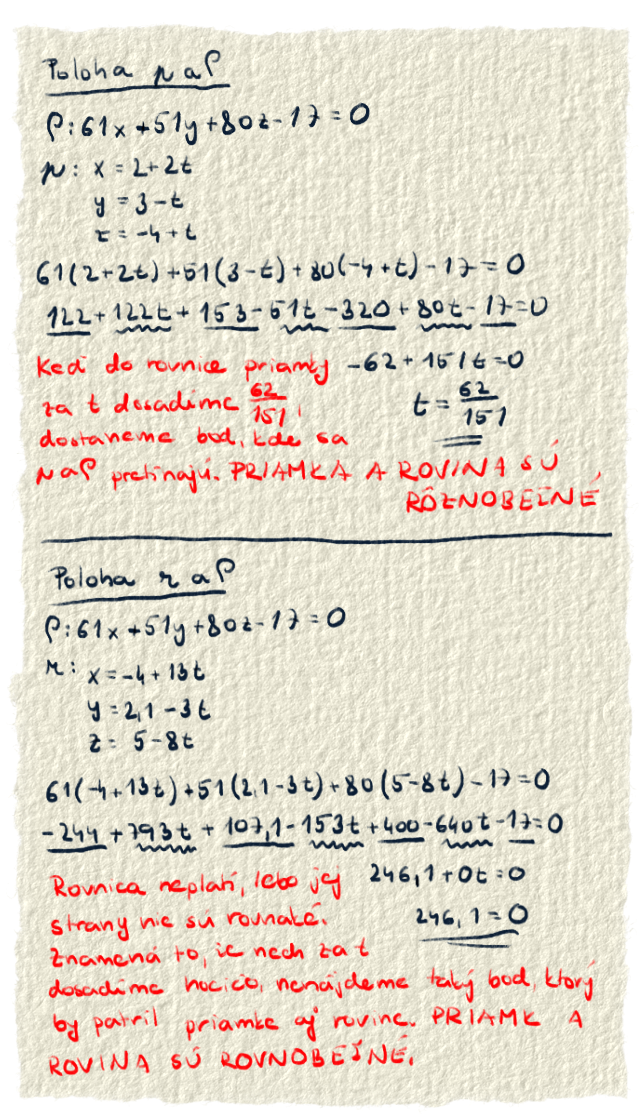 Poloha p a ρ
ρ: 61x + 51y + 80z - 17 = 0
p: x = 2 + 2t
y = 3 - t
z = -4 + t
61(2+2t) + 51(3-t) + 80(-4+t) - 17 = 0
122 + 122t + 153 - 51t - 320 + 80t - 17 = 0
Keď do rovnice priamky -62 + 151t = 0
za t dosadíme 62/151, t = 62/151
dostaneme bod, kde sa
p a ρ pretínajú. PRIAMKA A ROVINA SÚ
RÔZNOBEŽNÉ
Poloha r a ρ
ρ: 61x + 51y + 80z - 17 = 0
r: x = -4 + 13t
y = 2,1 - 3t
z = 5 - 8t
61(-4+13t) + 51(2,1-3t) + 80(5-8t) - 17 = 0
-244 + 793t + 107,1 - 153t + 400 - 640t - 17 = 0
Rovnica neplatí, lebo jej 246,1 + 0t = 0
strany nie sú rovnaké. 246,1 = 0
Znamená to, že nech za t
dosadíme hocičo, nenájdeme taký bod, ktorý
by patril priamke aj rovine. PRIAMK A
ROVINA SÚ ROVNOBEŽNÉ.